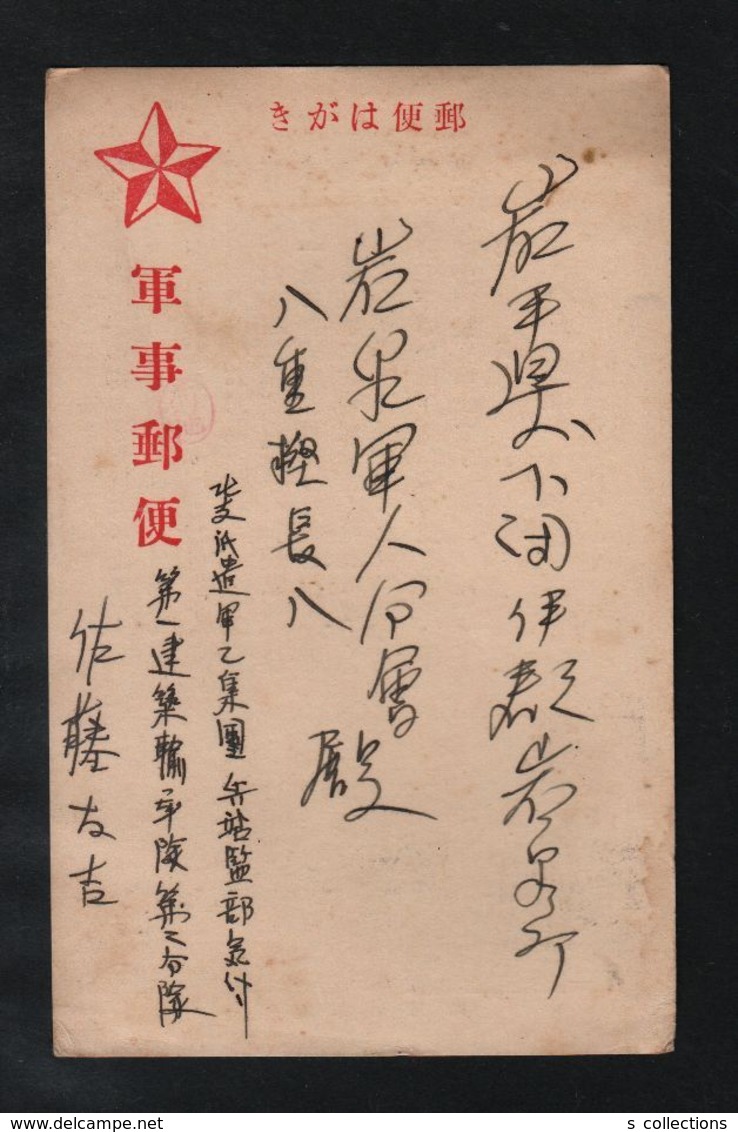 郵便はがき
岩手県下閉伊郡岩泉町
岩泉軍人分會
八重樫長八
殿
軍事郵便
北支派遣軍乙集團兵站監部気付
第一建築輸卒隊第二分隊
佐藤友吉
s collections
delcampe.net